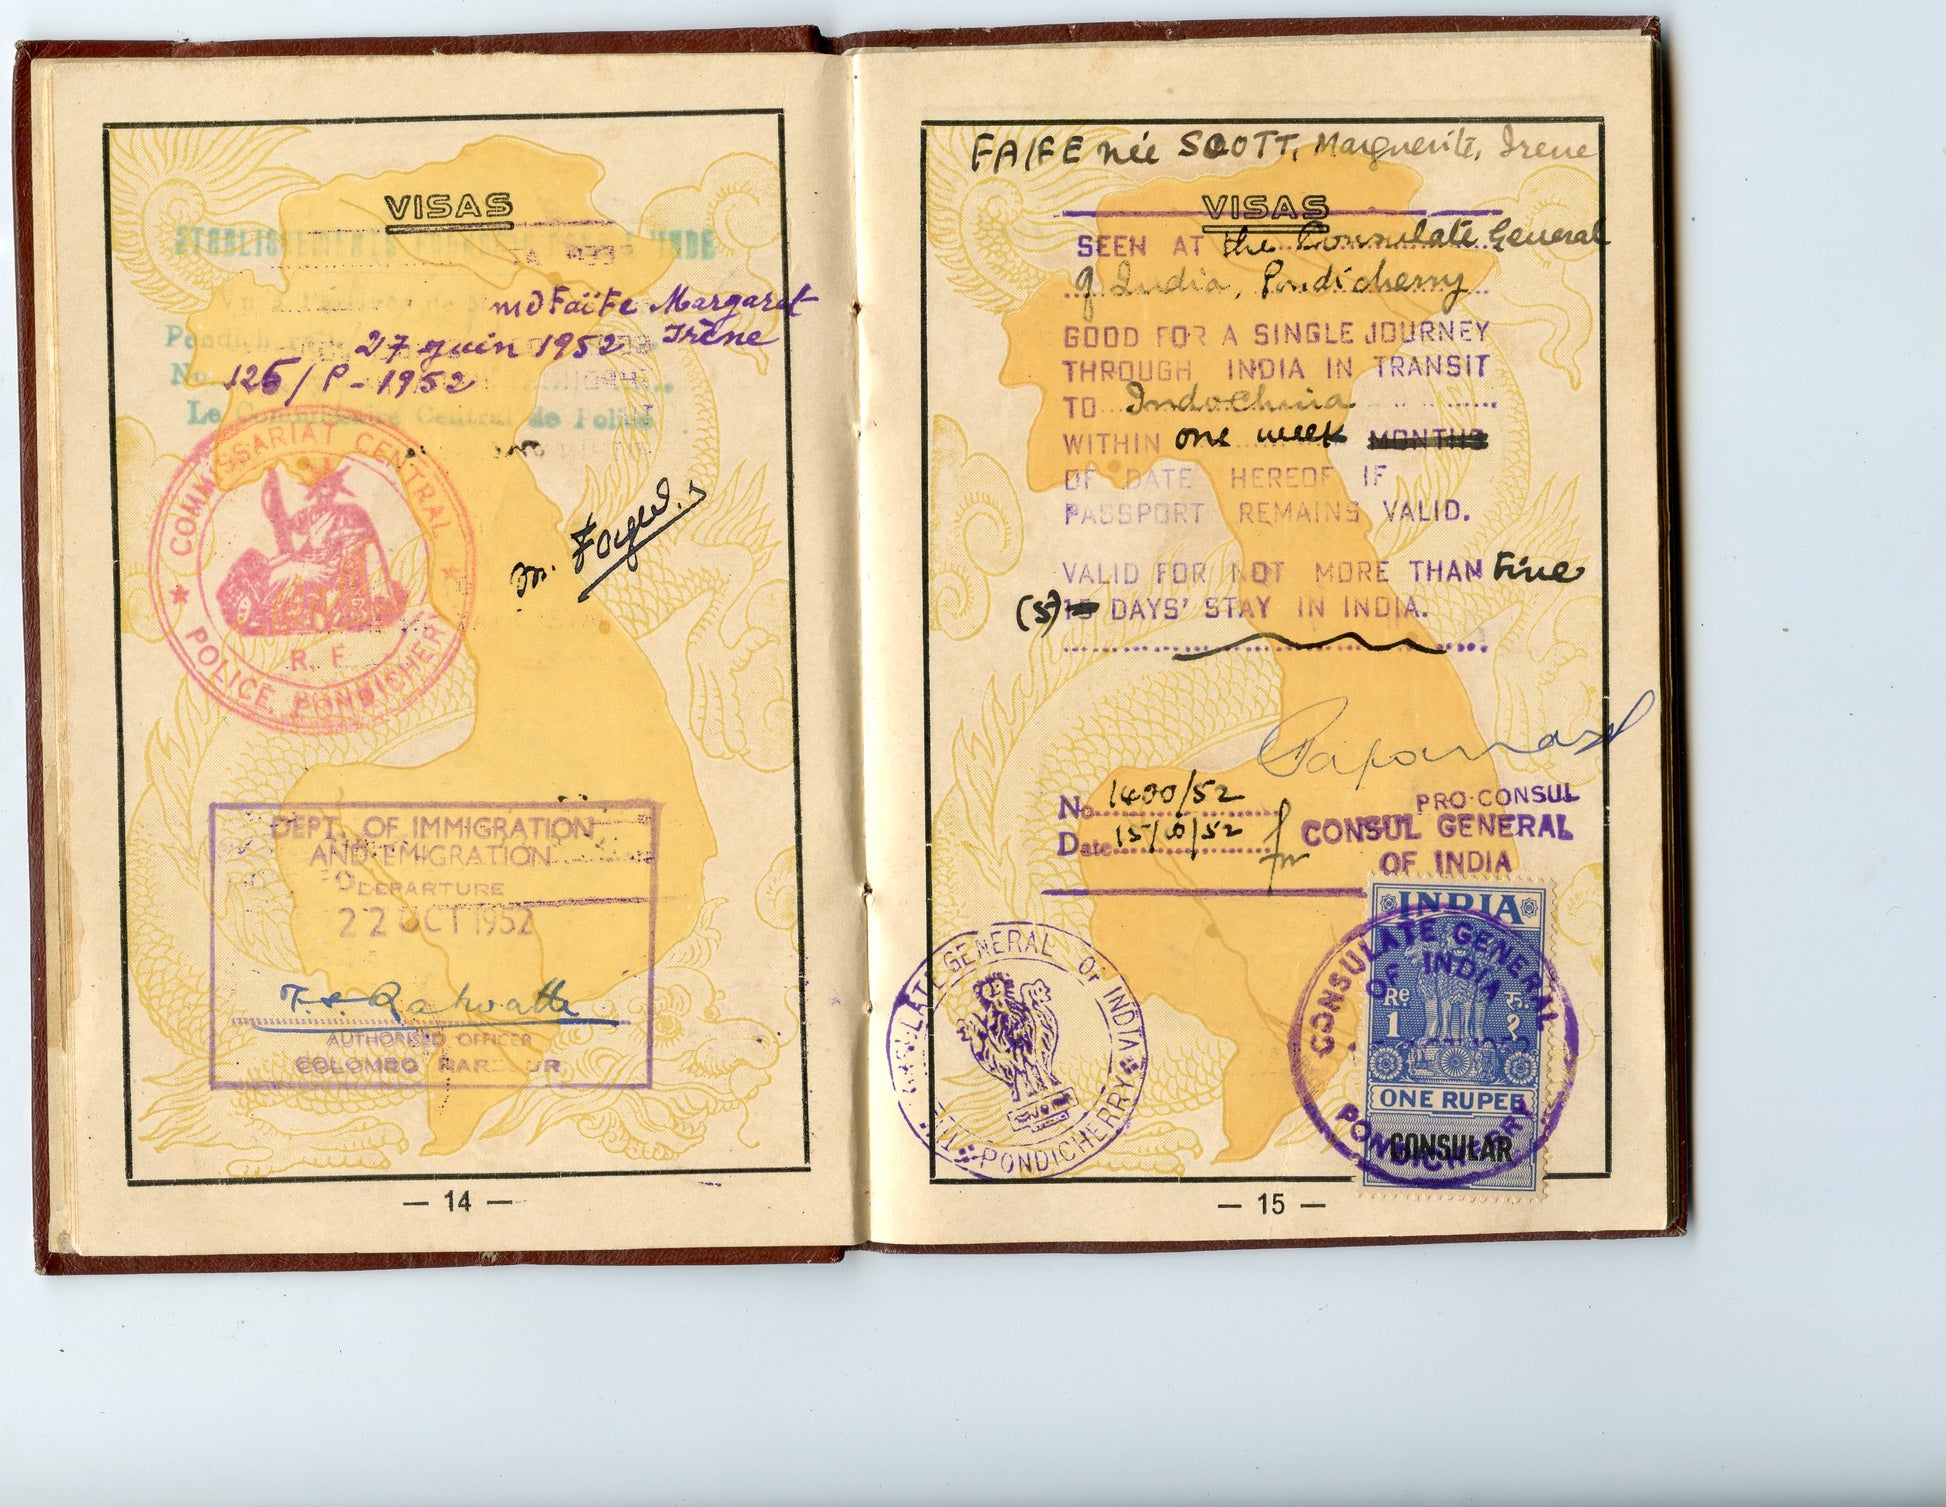 VISAS
ETABLISSEMENTS
md Faïfe Margaret
Irène
Pondichéry
27 juin 1952
No 126/P-1952
Le Commissaire Central de Police
COMMISSARIAT CENTRAL
R. F.
POLICE, PONDICHERY
DEPT. OF IMMIGRATION
AND EMIGRATION
DEPARTURE
22 OCT 1952
AUTHORISED OFFICER
COLOMBO HAR UR
— 14 —
FAIFE née SCOTT, Marguerite, Irene
VISAS
SEEN AT the Consulate General
of India, Pondicherry
GOOD FOR A SINGLE JOURNEY
THROUGH INDIA IN TRANSIT
TO Indochina
WITHIN one week MONTHS
OF DATE HEREOF IF
PASSPORT REMAINS VALID.
VALID FOR NOT MORE THAN Five
(5) 15 DAYS' STAY IN INDIA.
No. 1400/52
Date 15/10/52
PRO-CONSUL
for CONSUL GENERAL
OF INDIA
THE CONSULATE GENERAL OF INDIA
PONDICHERRY
INDIA
Re रु.
1 १
ONE RUPEE
CONSULAR
CONSULATE GENERAL
OF INDIA
PONDICHERRY
— 15 —